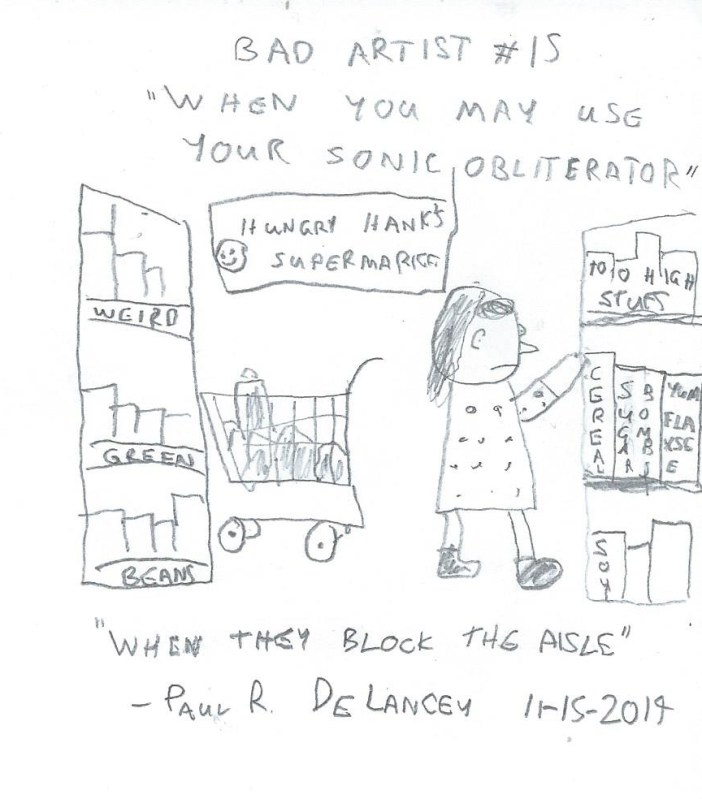 BAD ARTIST #15
"WHEN YOU MAY USE
YOUR SONIC OBLITERATOR"
HUNGRY HANK'S
SUPERMARKE
WEIRD
GREEN
BEANS
TOO HIGH
STUFF
CEREAL
SUGAR
BOMBS
YUM
FLA
XSE
E
SOY
"WHEN THEY BLOCK THE AISLE"
- PAUL R. DELANCEY 11-15-2014